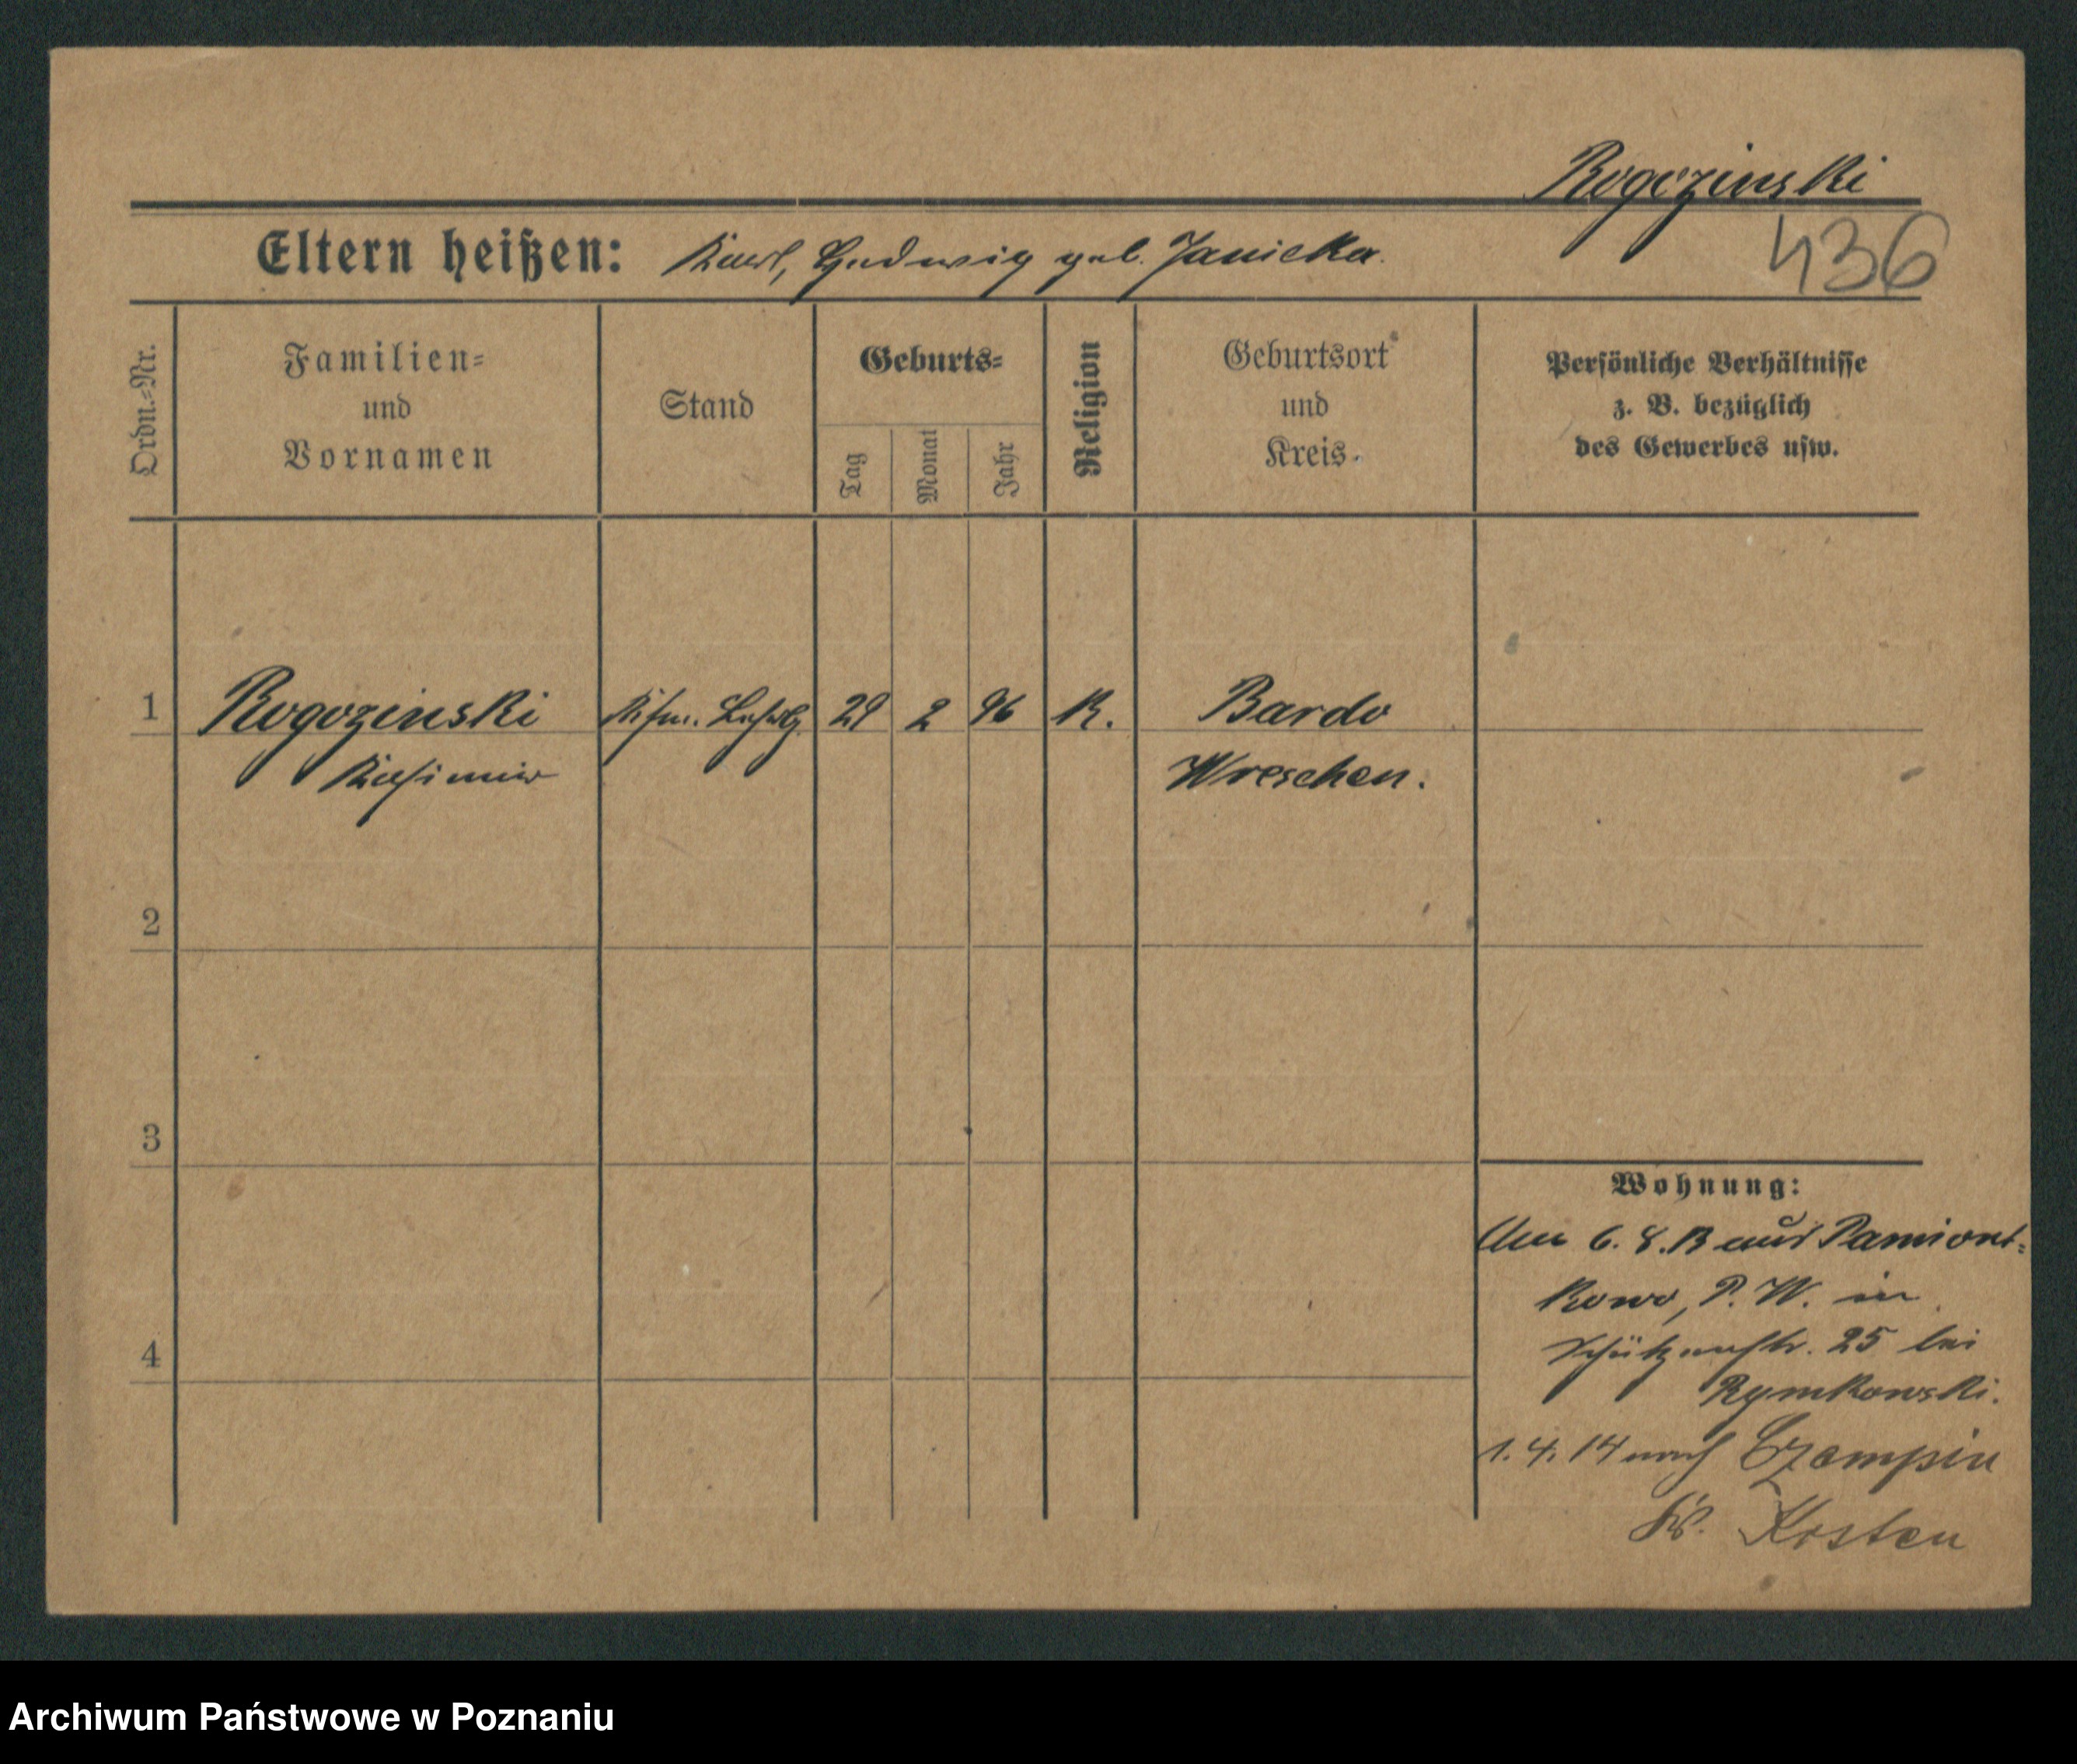 Rogozinski
436
Eltern heißen: Karl, Hedwig geb. Janicka.
Ordn.-Nr.
Familien-
und
Vornamen
Stand
Geburts-
Tag
Monat
Jahr
Religion
Geburtsort
und
Kreis.
Persönliche Verhältnisse
z. B. bezüglich
des Gewerbes usw.
1 Rogozinski Kfm. Lehrlg. 29 2 96 K. Bardo
Kasimir Wreschen.
2
3
4
Wohnung:
Am 6. 8. 13 aus Pamiont-
kowo, P. W. in
Schützenstr. 25 bei
Rymkowski.
1. 4. 14 nach Czempin
Kr. Kosten
Archiwum Państwowe w Poznaniu